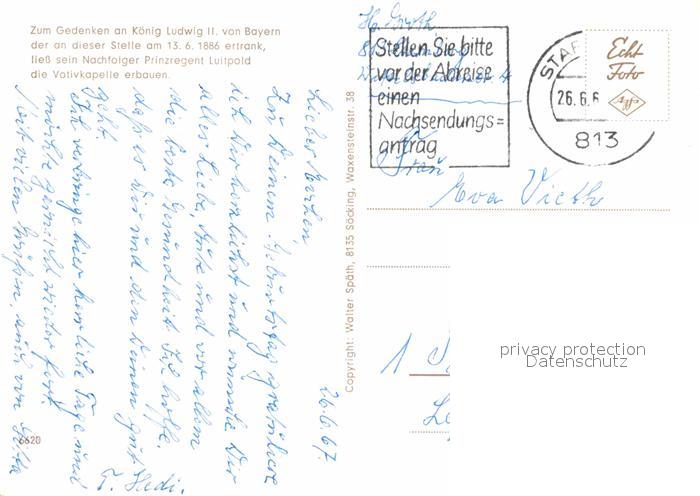 Zum Gedenken an König Ludwig II. von Bayern
der an dieser Stelle am 13. 6. 1886 ertrank,
ließ sein Nachfolger Prinzregent Luitpold
die Votivkapelle erbauen.
26.6.67.
Zu Deinem Geburtstag gratuliere
ich Dir herzlichst und wünsche Dir
alles Liebe, Gute und vor allem
die beste Gesundheit. Ich hoffe,
daß es Dir und den Deinen gut
geht.
Ich verbringe hier herrliche Tage und
möchte gar nicht wieder fort.
Mit vielen Grüßen, auch von
T. Hedi.
6620
Copyright: Walter Späth, 8135 Söcking, Waxensteinstr. 38
H.
Stellen Sie bitte
vor der Abreise
einen
Nachsendungs=
antrag
STAR
26.6.6
813
Echt
Foto
Agfa
Frau
Eva Vieth
1
privacy protection
Datenschutz